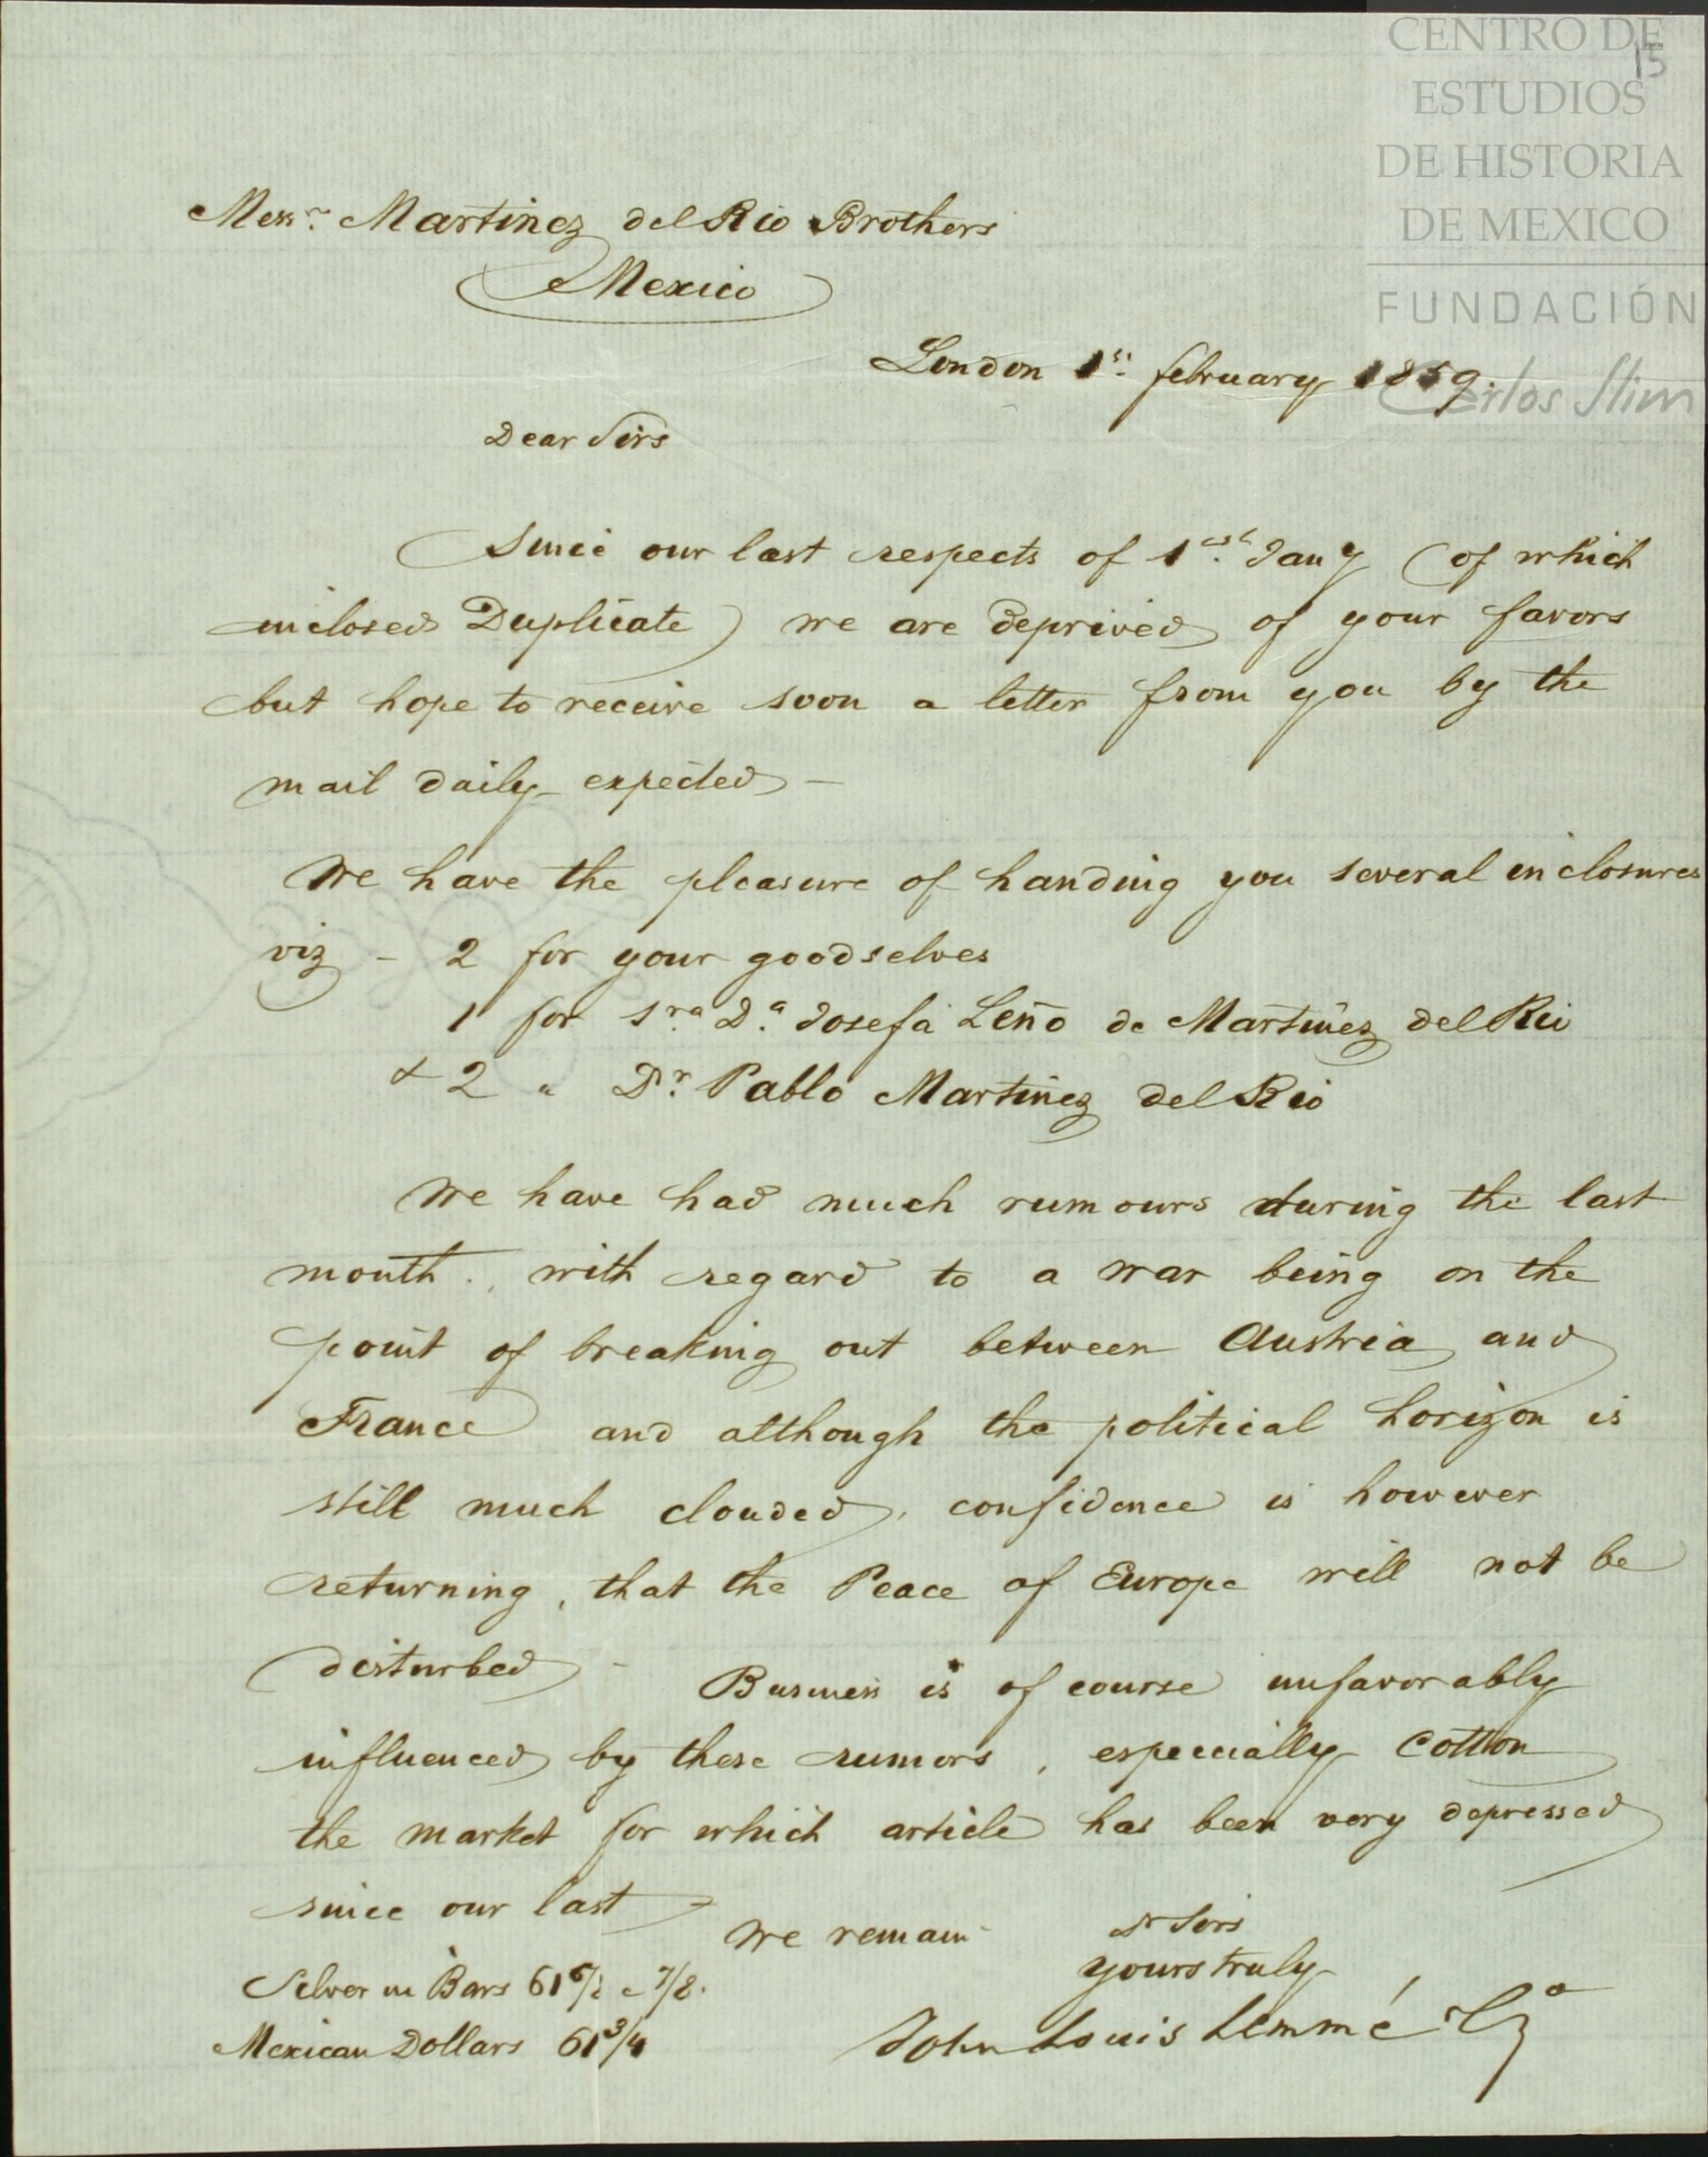 CENTRO DE
ESTUDIOS
DE HISTORIA
DE MEXICO
FUNDACIÓN
Carlos Slim
15
Messrs. Martinez del Rio Brothers
Mexico
London 1st. february 1859.
Dear Sirs
Since our last respects of 1st. Jany (of which
inclosed Duplicate) we are deprived of your favors
but hope to receive soon a letter from you by the
mail daily expected —
We have the pleasure of handing you several inclosures
viz – 2 for your goodselves
1 for Sra. Da. Josefa Leño de Martinez del Rio
& 2 " Dr. Pablo Martinez del Rio
We have had much rumours during the last
month, with regard to a war being on the
point of breaking out between Austria and
France and although the political horizon is
still much clouded, confidence is however
returning, that the Peace of Europe will not be
disturbed – Business is of course unfavorably
influenced by these rumors, especially Cotton
the market for which article has been very depressed
since our last
We remain Dr Sirs
yours truly
Silver in Bars 61 a 7/8.
Mexican Dollars 61 3/4
John Louis Lemmé & Co